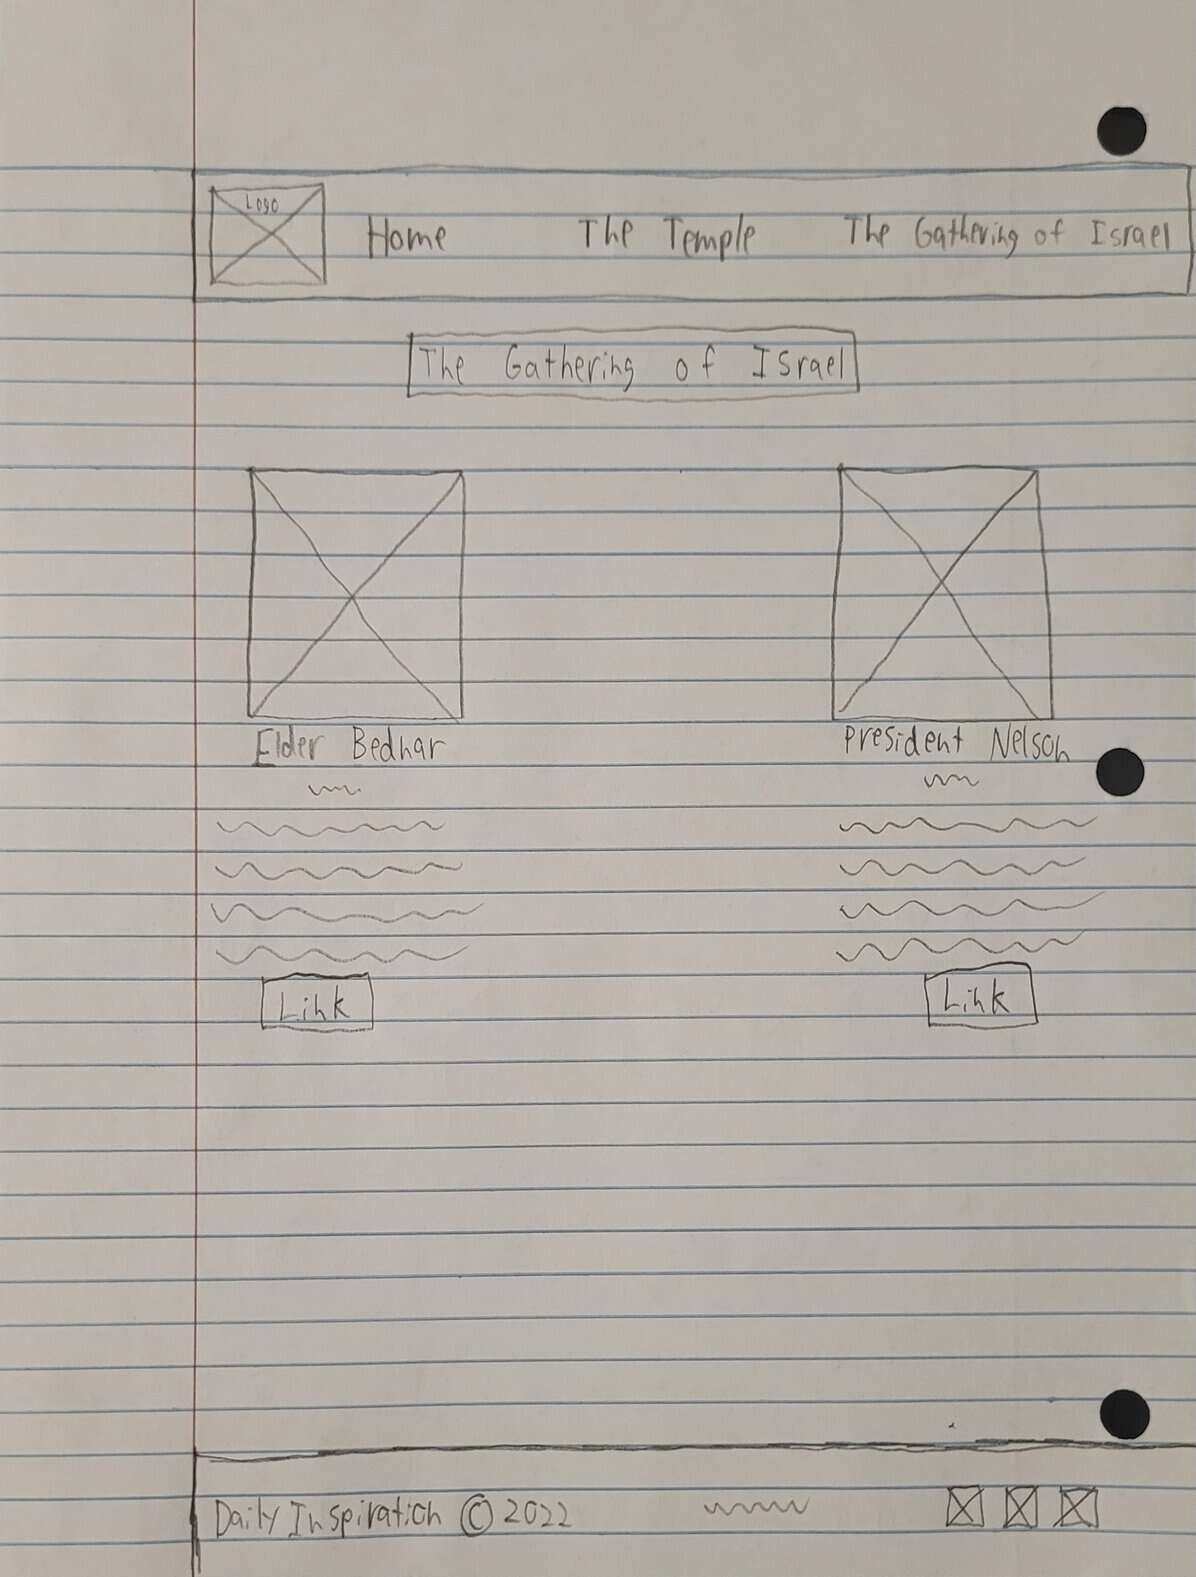 Logo
Home The Temple The Gathering of Israel
The Gathering of Israel
Elder Bednar President Nelson
Link Link
Daily Inspiration © 2022